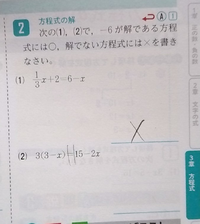 2 方程式の解
次の(1), (2)で, −6が解である方程
式には○, 解でない方程式には×を書き
なさい。
(1) 1/3x+2=6−x
×
(2) 3(3−x)=15−2x
3章 方程式